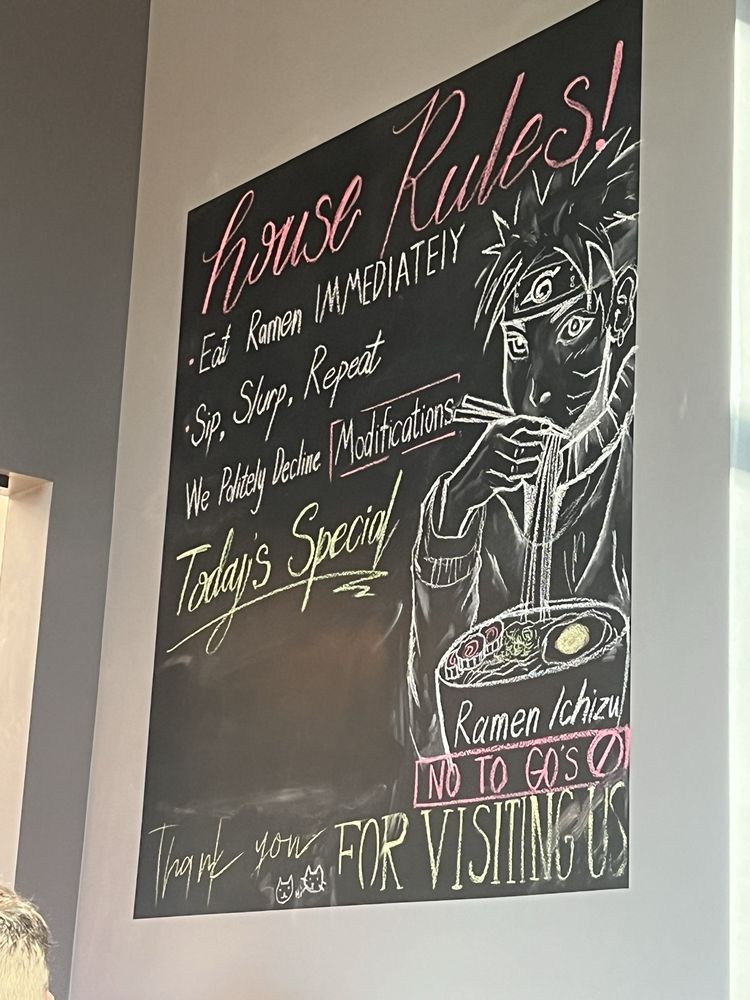 house Rules!
· Eat Ramen IMMEDIATElY
· Sip, Slurp, Repeat
We Politely Decline Modifications
Today's Special
Ramen Ichizu
NO TO GO'S
Thank you FOR VISITING US